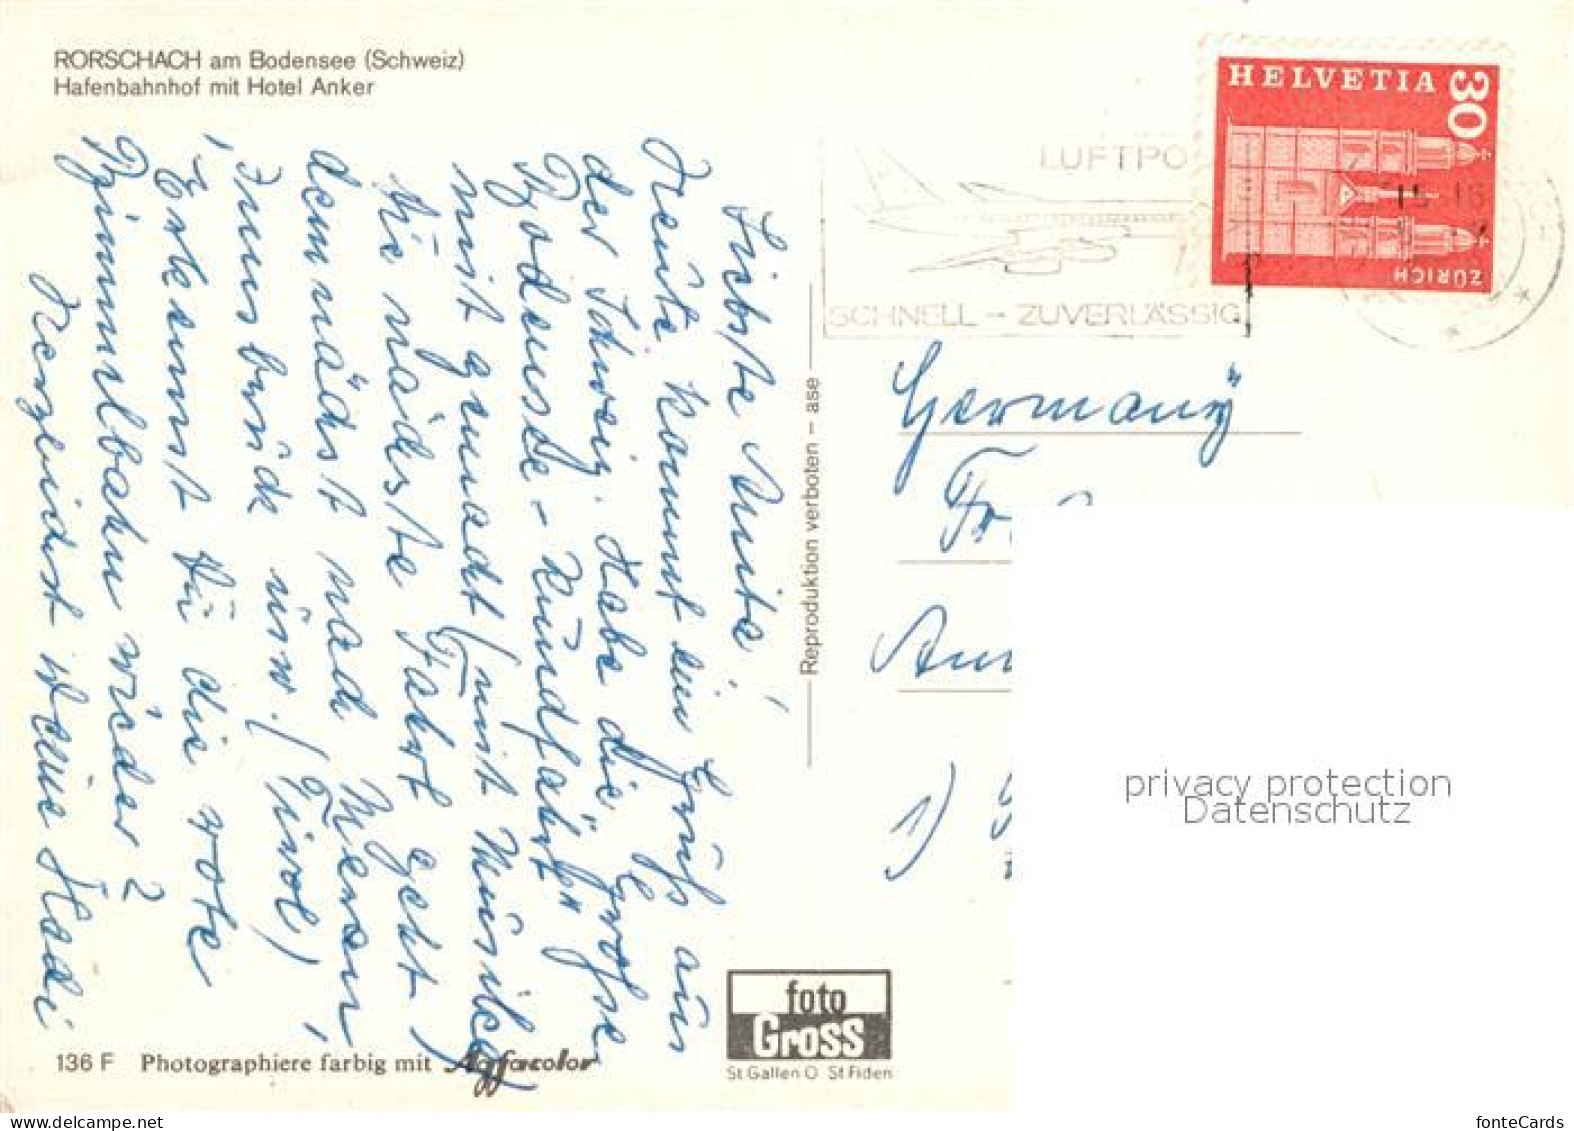 RORSCHACH am Bodensee (Schweiz)
Hafenbahnhof mit Hotel Anker
Liebste Anita,
Heute kommt ein Gruß aus
der Schweiz. Habe die "große
Bodensee-Rundfahrt"
mit gemacht (mit Musike)
Die nächste Fahrt geht
demnächst nach Meran,
Innsbruck usw. (Tirol)
Erkennst Du die rote
Bimmelbahn wieder?
Herzlichst Deine Hedi
136 F Photographiere farbig mit Agfacolor
Reproduktion verboten - ase
foto
Gross
St Gallen O St Fiden
LUFTPO
SCHNELL - ZUVERLÄSSIG
HELVETIA 30
ZÜRICH
Germany
1)
privacy protection
Datenschutz
fonteCards